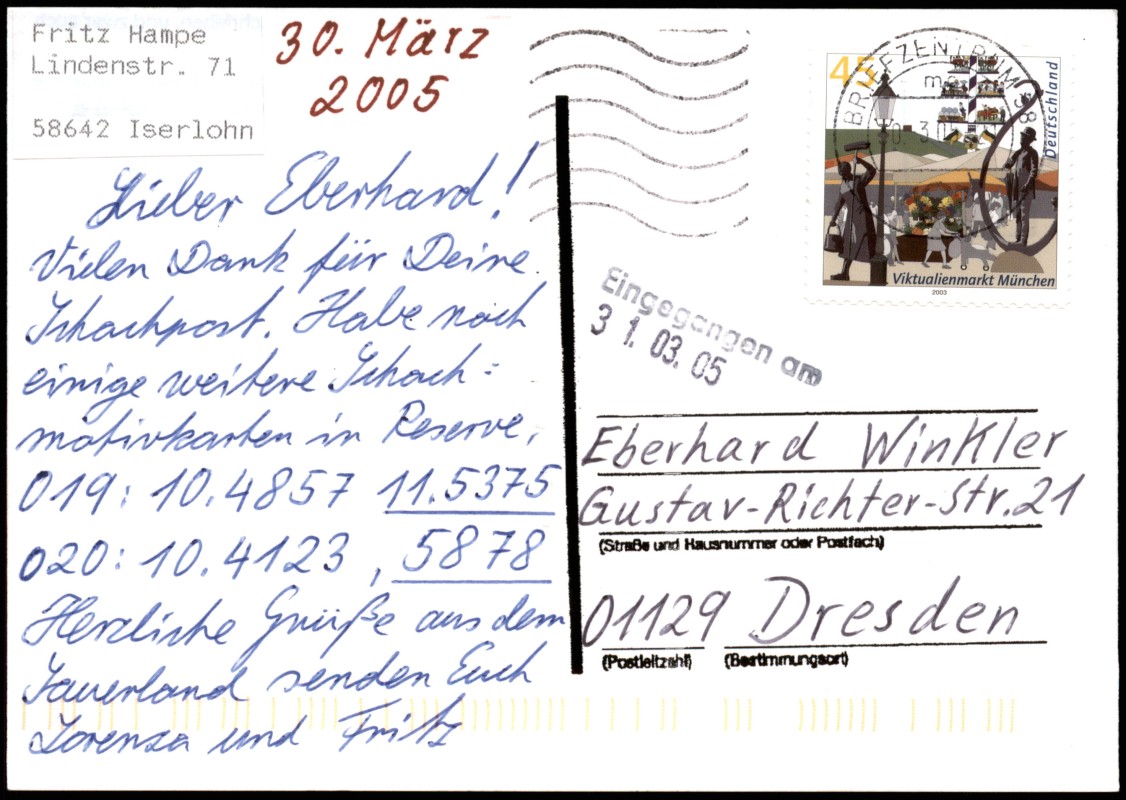 Fritz Hampe
Lindenstr. 71
58642 Iserlohn
30. März
2005
Lieber Eberhard!
Vielen Dank für Deine
Schachpost. Habe noch
einige weitere Schach-
motivkarten in Reserve.
019: 10.4857 11.5375
020: 10.4123, 5878
Herzliche Grüße aus dem
Sauerland senden Euch
Lorenza und Fritz
45
Deutschland
Viktualienmarkt München
2003
BRIEFZENTRUM 58
Eingegangen am
31. 03. 05
Eberhard Winkler
Gustav-Richter-Str. 21
(Straße und Hausnummer oder Postfach)
01129 Dresden
(Postleitzahl) (Bestimmungsort)